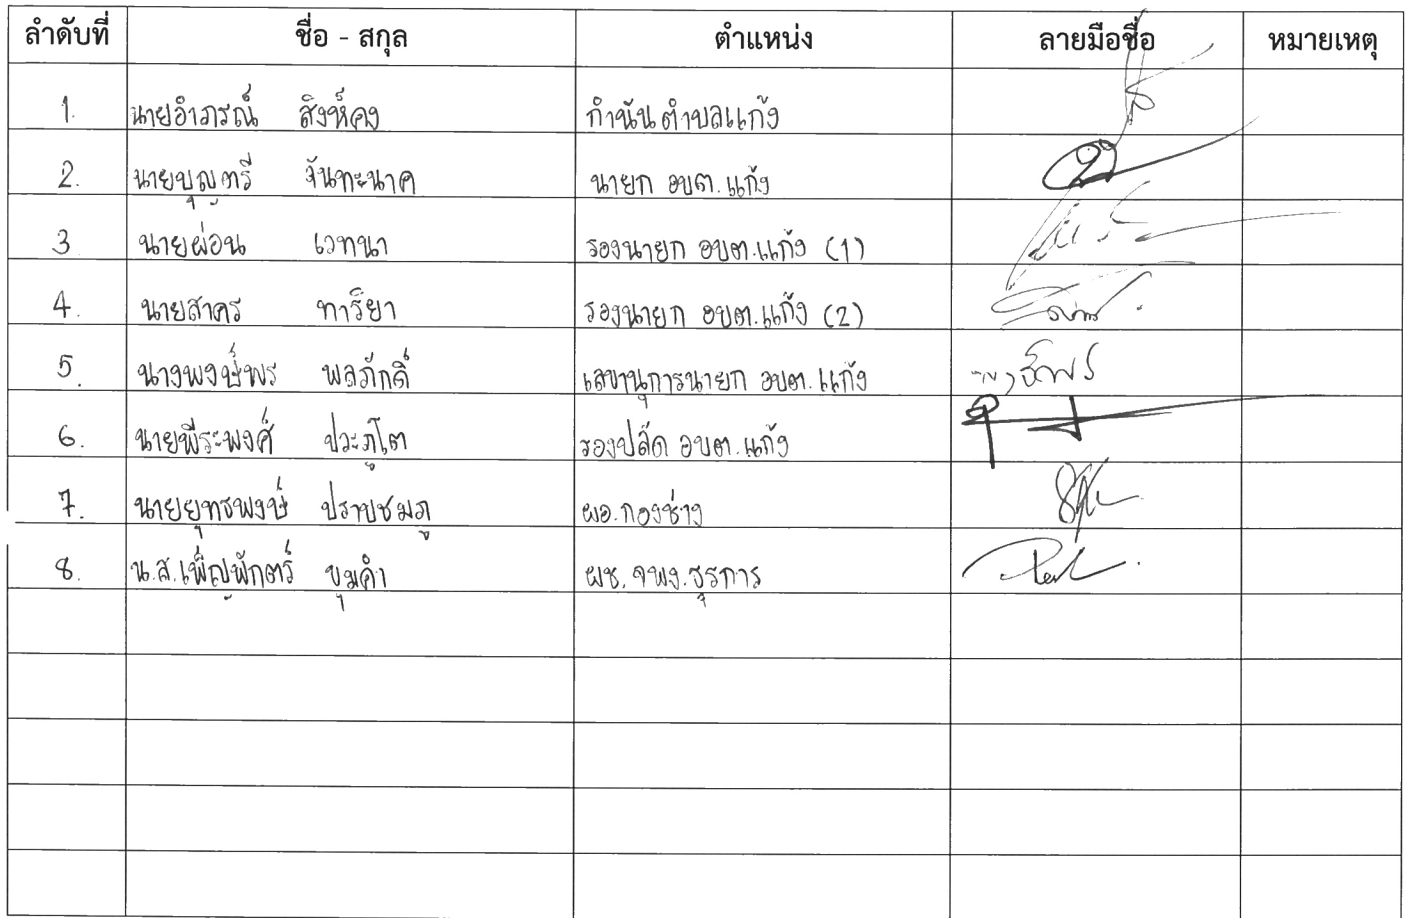 ลำดับที่ ชื่อ - สกุล ตำแหน่ง ลายมือชื่อ หมายเหตุ
1. นายอำภรณ์ สิงห์คง กำนันตำบลแก้ง
2. นายบุญตรี จันทะนาค นายก อบต.แก้ง
3 นายผ่อน เวทนา รองนายก อบต.แก้ง (1)
4. นายสาคร ทาริยา รองนายก อบต.แก้ง (2)
5. นางพงษ์พร พลภักดิ์ เลขานุการนายก อบต.แก้ง
6. นายพีระพงศ์ ปวะภูโต รองปลัด อบต.แก้ง
7. นายยุทธพงษ์ ปราบชมภู ผอ.กองช่าง
8. น.ส.เพ็ญพักตร์ ขุมคำ ผช.จพง.ธุรการ